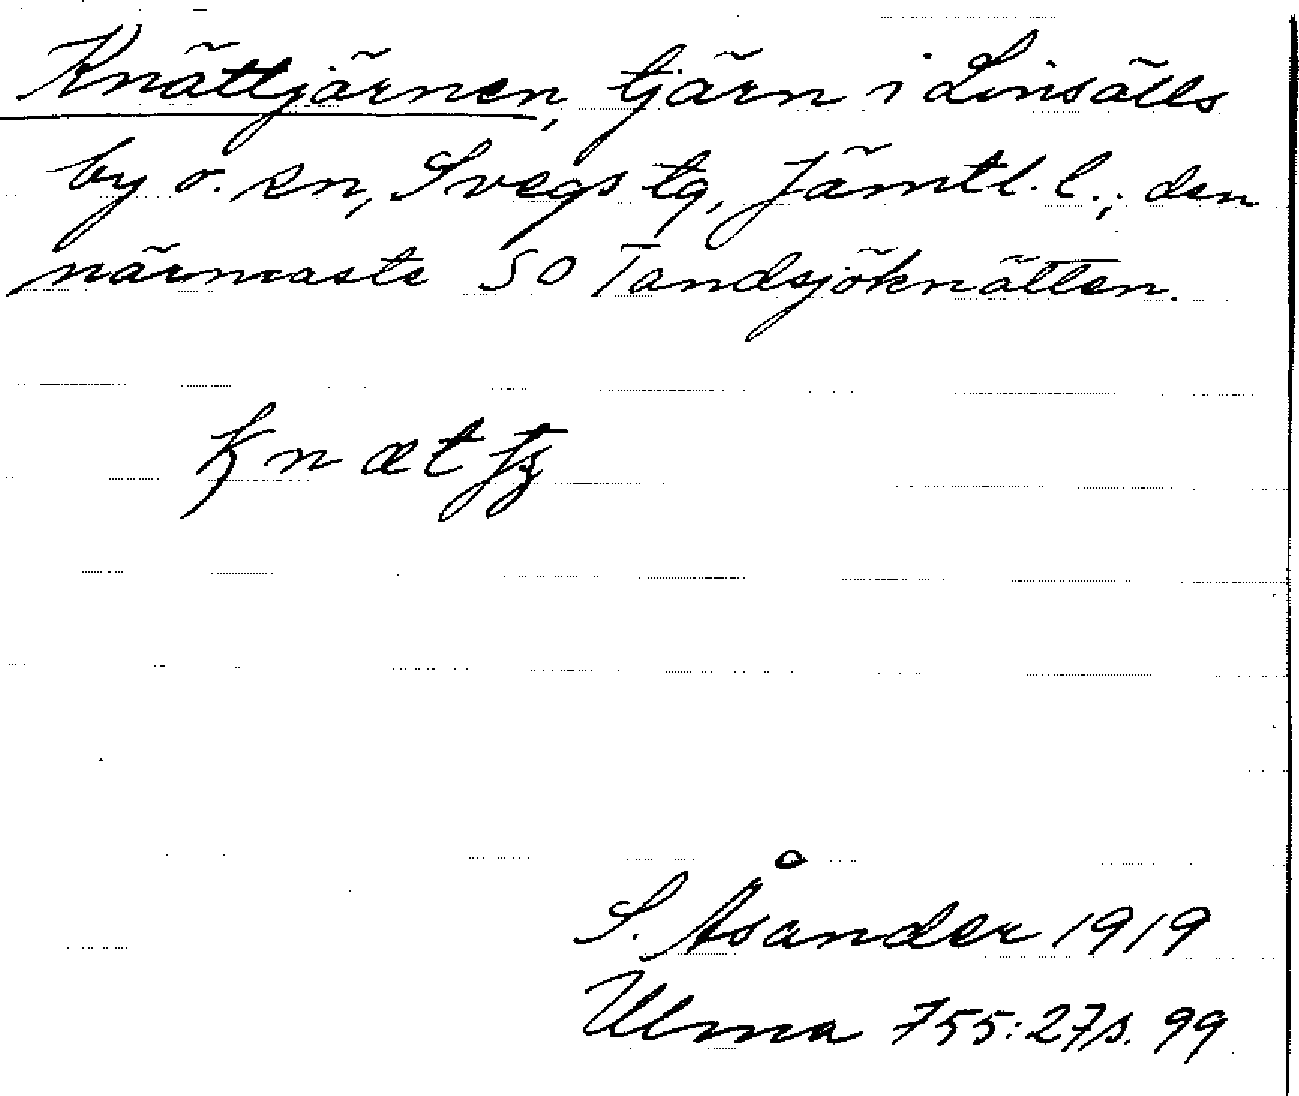 Knättjärnen, tjärn i Linsälls
by o. sn, Svegs tg, Jämtl. l.; den
närmaste SO Tandsjöknätten.
S. Åsander 1919
Ulma 755:27 s. 99